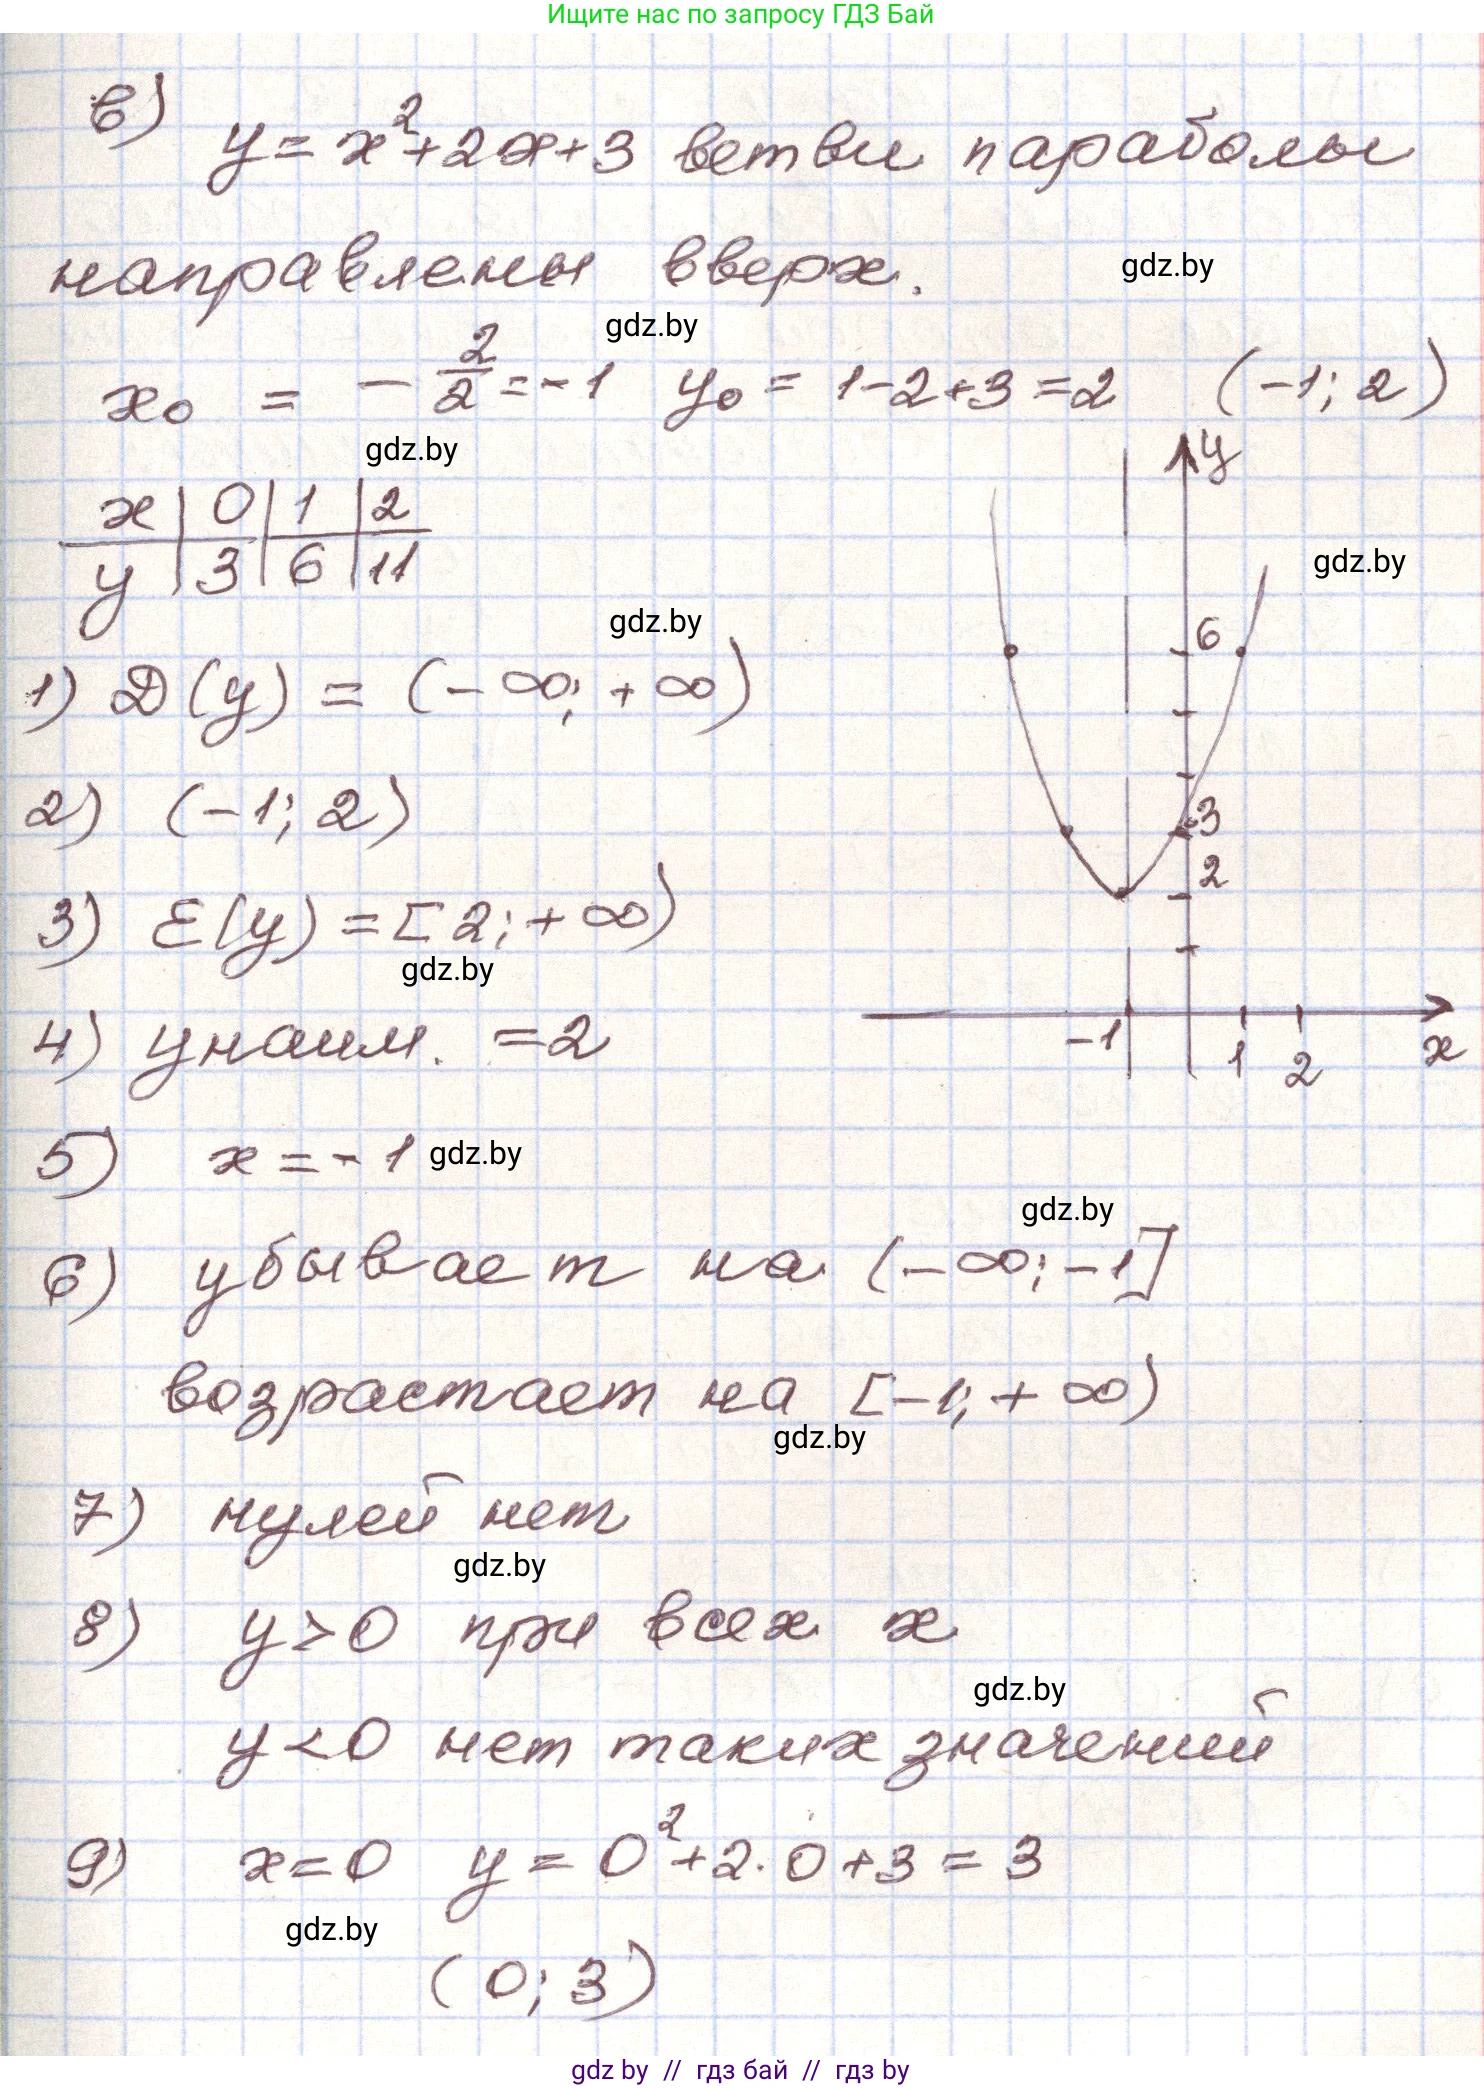 Ищите нас по запросу ГДЗ Бай
в) y = x² + 2x + 3 ветви параболы
направлены вверх.
gdz.by
gdz.by
x₀ = - 2/2 = -1 y₀ = 1-2+3 = 2 (-1; 2)
gdz.by
x | 0 | 1 | 2
y | 3 | 6 | 11
y
gdz.by
6
3
2
-1
1
2
x
gdz.by
1) D(y) = (-∞; +∞)
2) (-1; 2)
3) E(y) = [2; +∞)
gdz.by
4) y наим. = 2
5) x = -1
gdz.by
gdz.by
6) убывает на (-∞; -1]
возрастает на [-1; +∞)
gdz.by
7) нулей нет
gdz.by
8) y > 0 при всех x
gdz.by
y < 0 нет таких значений
9) x = 0 y = 0² + 2·0 + 3 = 3
gdz.by
(0; 3)
gdz by // гдз бай // гдз by